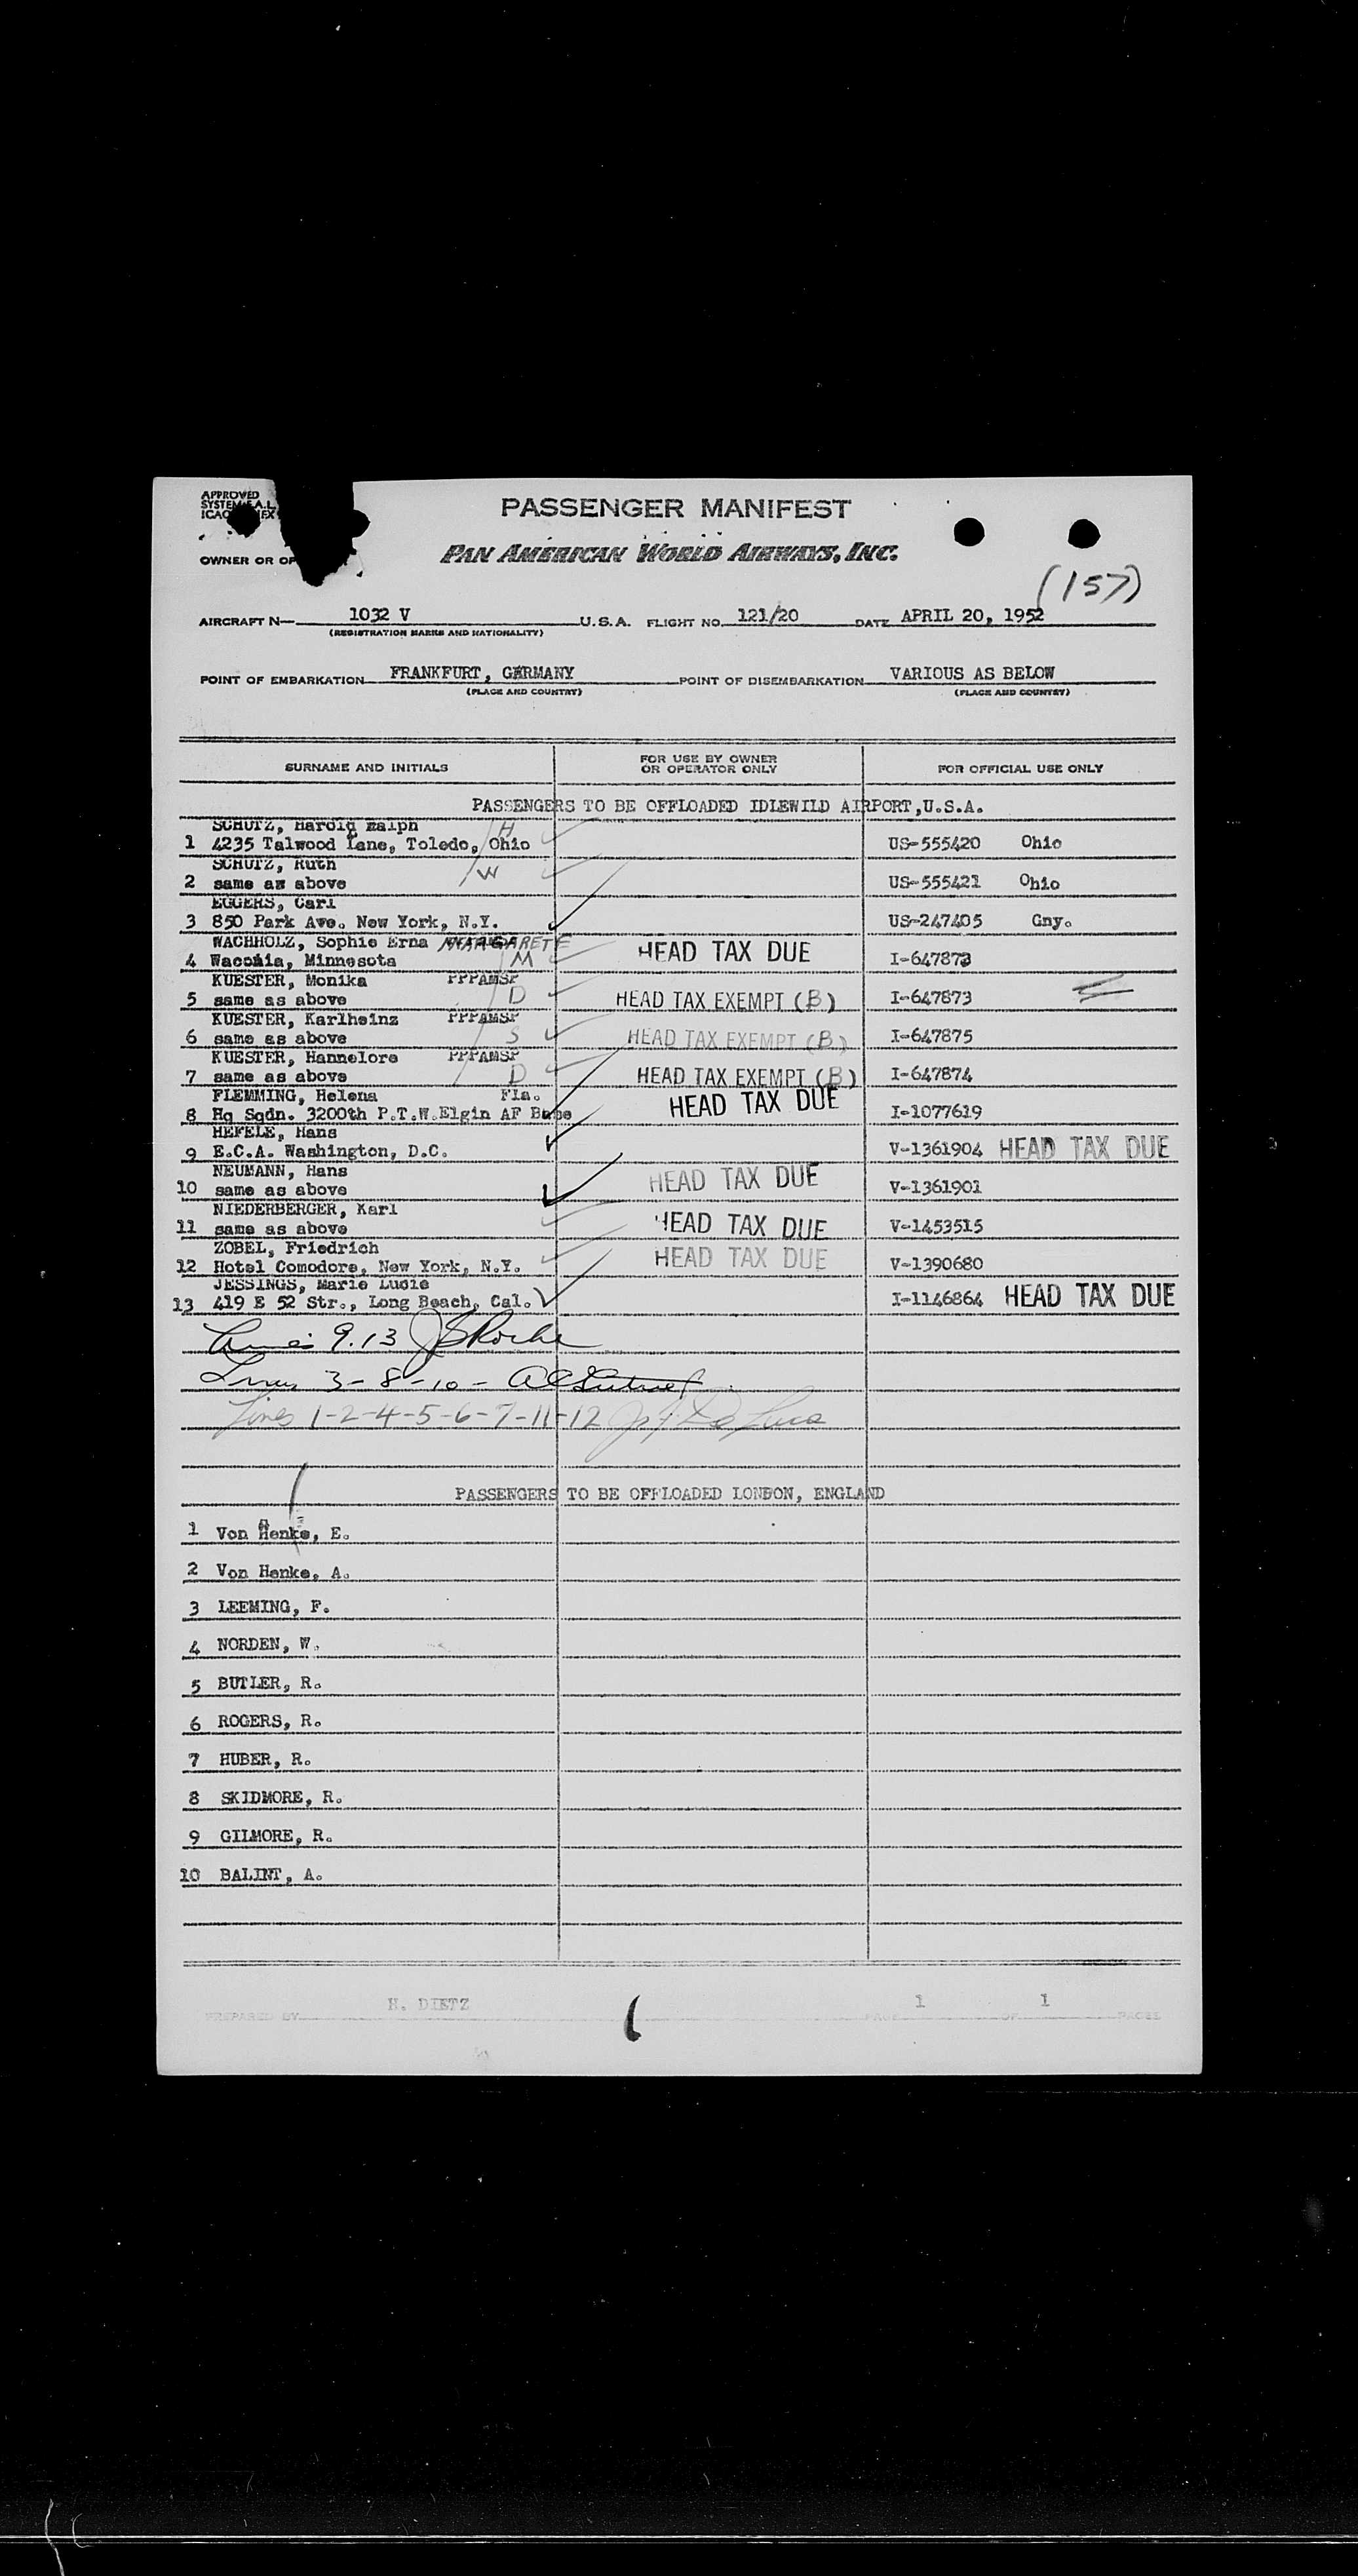 APPROVED
SYSTEM
ICAO
PASSENGER MANIFEST
OWNER OR OP
PAN AMERICAN WORLD AIRWAYS, INC.
(157)
AIRCRAFT N— 1032 V U.S.A. FLIGHT NO. 121/20 DATE APRIL 20, 1952
(REGISTRATION MARKS AND NATIONALITY)
POINT OF EMBARKATION FRANKFURT, GERMANY POINT OF DISEMBARKATION VARIOUS AS BELOW
(PLACE AND COUNTRY) (PLACE AND COUNTRY)
SURNAME AND INITIALS FOR USE BY OWNER OR OPERATOR ONLY FOR OFFICIAL USE ONLY
PASSENGERS TO BE OFFLOADED IDLEWILD AIRPORT,U.S.A.
SCHUTZ, Harold Ralph H
1 4235 Talwood Lane, Toledo, Ohio US-555420 Ohio
SCHUTZ, Ruth W
2 same as above US-555421 Ohio
EGGERS, Carl
3 850 Park Ave. New York, N.Y. US-247405 Gny.
WACHHOLZ, Sophie Erna MARGARETE
4 Waconia, Minnesota M HEAD TAX DUE I-647873
KUESTER, Monika PPPAMSP
5 same as above D HEAD TAX EXEMPT (B) I-647873
KUESTER, Karlheinz PPPAMSP
6 same as above S HEAD TAX EXEMPT (B) I-647875
KUESTER, Hannelore PPPAMSP
7 same as above D HEAD TAX EXEMPT (B) I-647874
FLEMMING, Helena Fla.
8 Hq Sqdn. 3200th P.T.W.Elgin AF Base HEAD TAX DUE I-1077619
HEFELE, Hans
9 E.C.A. Washington, D.C. V-1361904 HEAD TAX DUE
NEUMANN, Hans
10 same as above HEAD TAX DUE V-1361901
NIEDERBERGER, Karl
11 same as above HEAD TAX DUE V-1453515
ZOBEL, Friedrich
12 Hotel Comodore, New York, N.Y. HEAD TAX DUE V-1390680
JESSINGS, Marie Lucie
13 419 E 52 Str., Long Beach, Cal. I-1146864 HEAD TAX DUE
Lines 9.13 J S Roche
Lines 3-8-10-
Lines 1-2-4-5-6-7-11-12 De Luca
PASSENGERS TO BE OFFLOADED LONDON, ENGLAND
1 Von Henke, E.
2 Von Henke, A.
3 LEEMING, F.
4 NORDEN, W.
5 BUTLER, R.
6 ROGERS, R.
7 HUBER, R.
8 SKIDMORE, R.
9 GILMORE, R.
10 BALINT, A.
PREPARED BY H. DIETZ PAGE 1 OF 1 PAGES